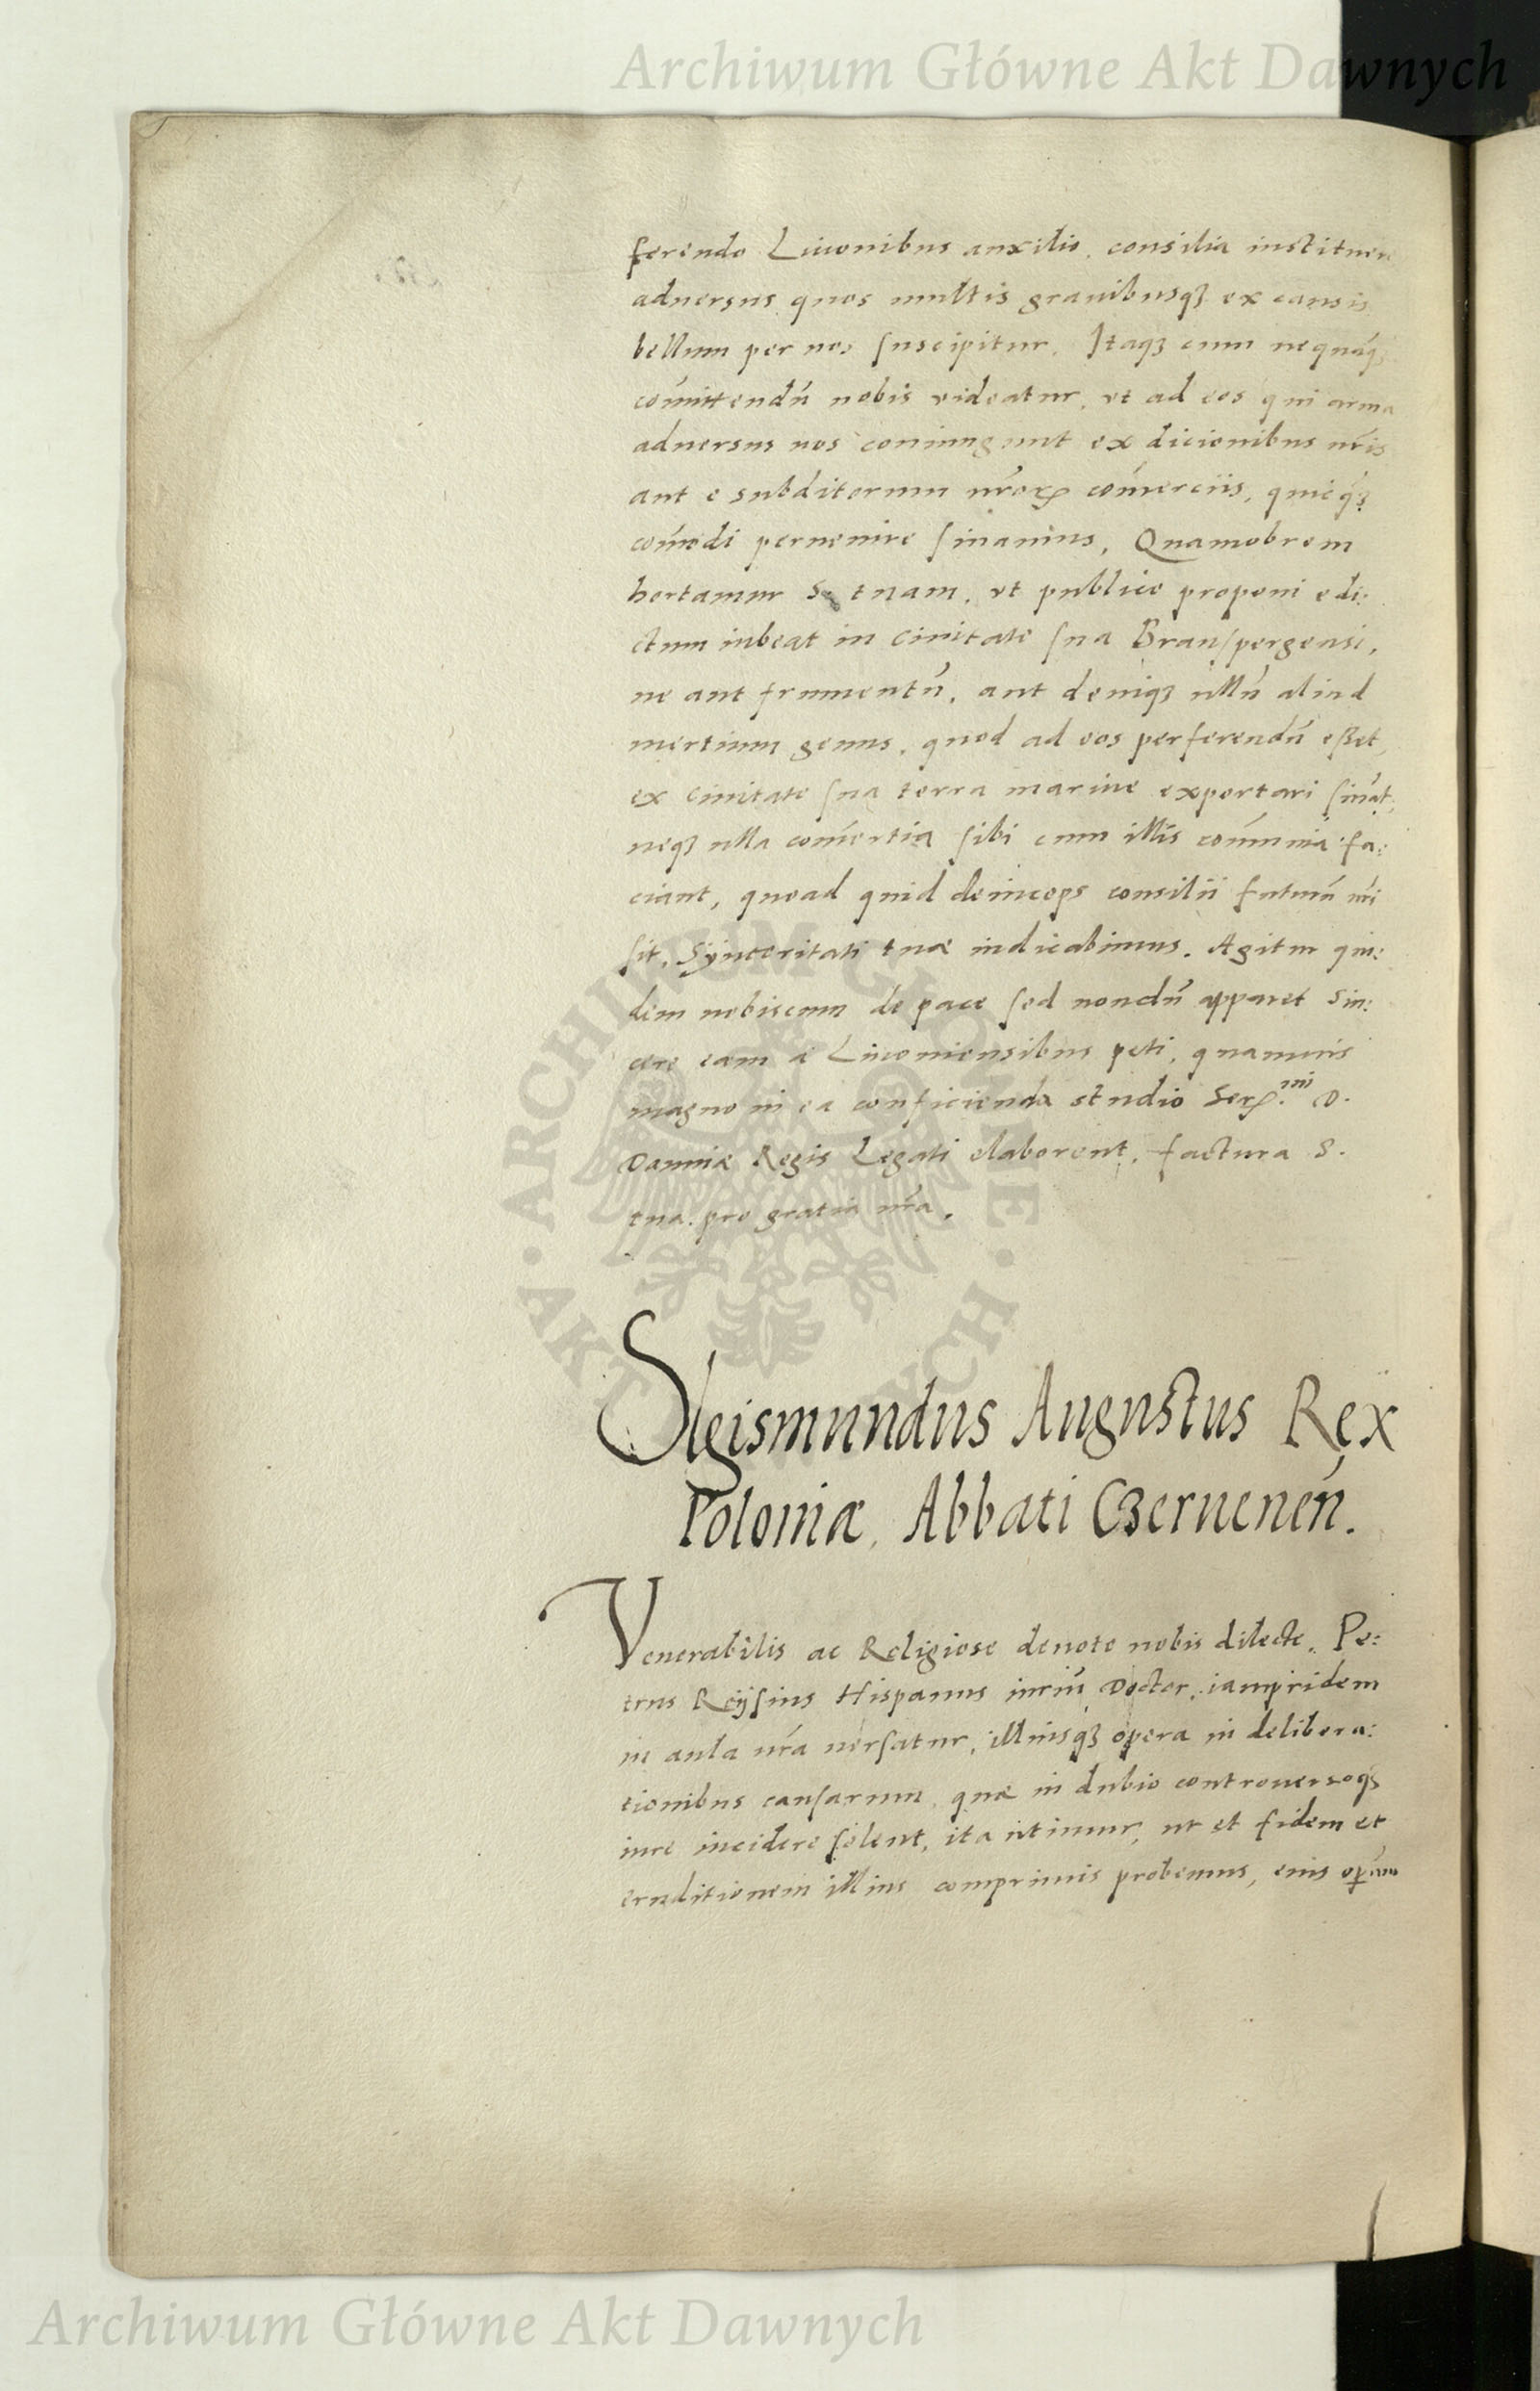 Archiwum Główne Akt Dawnych
ferendo Liuonibus auxilio, consilia instituen
aduersus quos multis grauibusqꝫ ex causis
bellum per nos suscipitur. Itaqꝫ cum nequáqꝫ
com̄ittendū nobis videatur, vt ad eos qui arma
aduersus nos coniungunt ex dicionibus nr̄is
aut e subditorum nr̄oꝝ com̄erciis, quicq̄ꝫ
com̄odi peruenire sinamus, Quamobrem
hortamur S. tuam, vt publico proponi edi:
ctum iubeat in ciuitate sua Braunspergensi,
ne aut frumentū, aut deniqꝫ ullū aliud
mertium genus, quod ad eos perferendū eßet,
ex ciuitate sua terra mariue exportari sinat,
neqꝫ ulla com̄ertia sibi cum illis com̄unia fa:
ciant, quoad quid deinceps consilii futurū nr̄i
sit, Synceritati tuæ indicabimus. Agitur qui:
dem nobiscum de pace sed nondū apparet sin:
cere eam a Liuoniensibus peti, quamuis
magno in ea conficienda studio Serꝝ.mi D.
Daniæ Regis Legati elaborent, factura S.
tua pro gratia nr̄a.
Sigismundus Augustus Rex
Poloniæ, Abbati Czeruenen̄.
Venerabilis ac Religiose deuote nobis dilecte. Pe:
trus Reÿsius Hispanus iuriū Doctor, iampridem
in aula nr̄a uersatur, illiusqꝫ opera in delibera:
tionibus causarum, quæ in dubio controuersoqꝫ
iure incidere solent, ita utimur, ut et fidem et
eruditionem illius comprimis probemus, eius
ARCHIWUM GŁÓWNE AKT DAWNYCH
Archiwum Główne Akt Dawnych